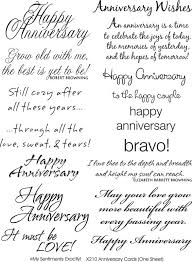 Happy
Anniversary
Grow old with me,
the best is yet to be!
ROBERT BROWNING
Still cozy after
all these years...
...through all the
love, sweat, & tears!
Happy
Anniversary
Happy
Anniversary
It must be
LOVE!
Anniversary Wishes
An anniversary is a time
to celebrate the joys of today,
the memories of yesterday,
and the hopes of tomorrow!
Happy Anniversary
to the happy couple
happy
anniversary
bravo!
I love thee to the depth and breadth
and height my soul can reach...
ELIZABETH BARRETT BROWNING
May your love grow
more beautiful with
every passing year.
Happy Anniversary
My Sentiments Exactly! X210 Anniversary Cards (One Sheet)